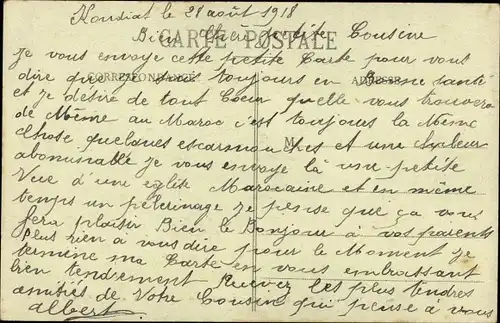 Koudiat le 28 août 1918
CARTE POSTALE
Bien chère petite Cousine
Je vous envoye cette petite Carte pour vous
CORRESPONDANCE ADRESSE
dire que je suis toujours en Bonne santé
et je désire de tout Cœur quelle vous trouvera
de Même au Maroc c'est toujours la Même
Chose quelques escarmouches et une chaleur
M
abominable Je vous envoye là une petite
Vue d'une eglise Marocaine et en même
temps un pèlerinage Je pense que ça vous
fera plaisir Bien le Bonjour à vos parents
plus rien a vous dire pour le Moment Je
termine ma Carte en vous embrassant
bien tendrement Recevez les plus tendres
amitiés de Votre Cousin qui pense à vous
Albert